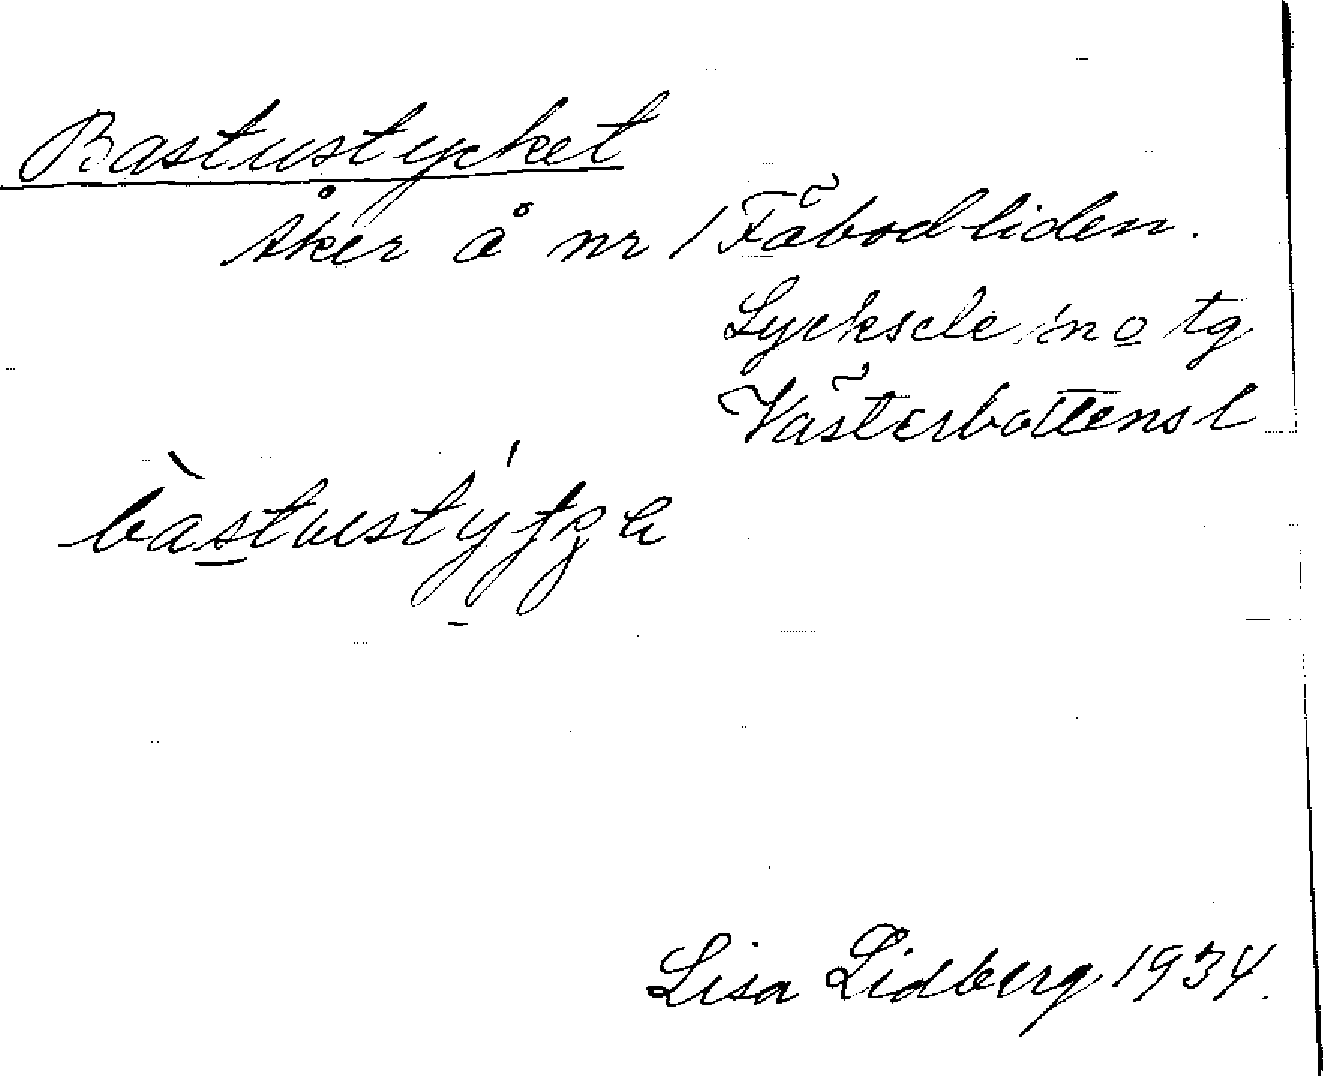 Bastustycket
åker å nr 1 Fäbodliden.
Lycksele sn o tg
Västerbottens l
Lisa Lidberg 1934.